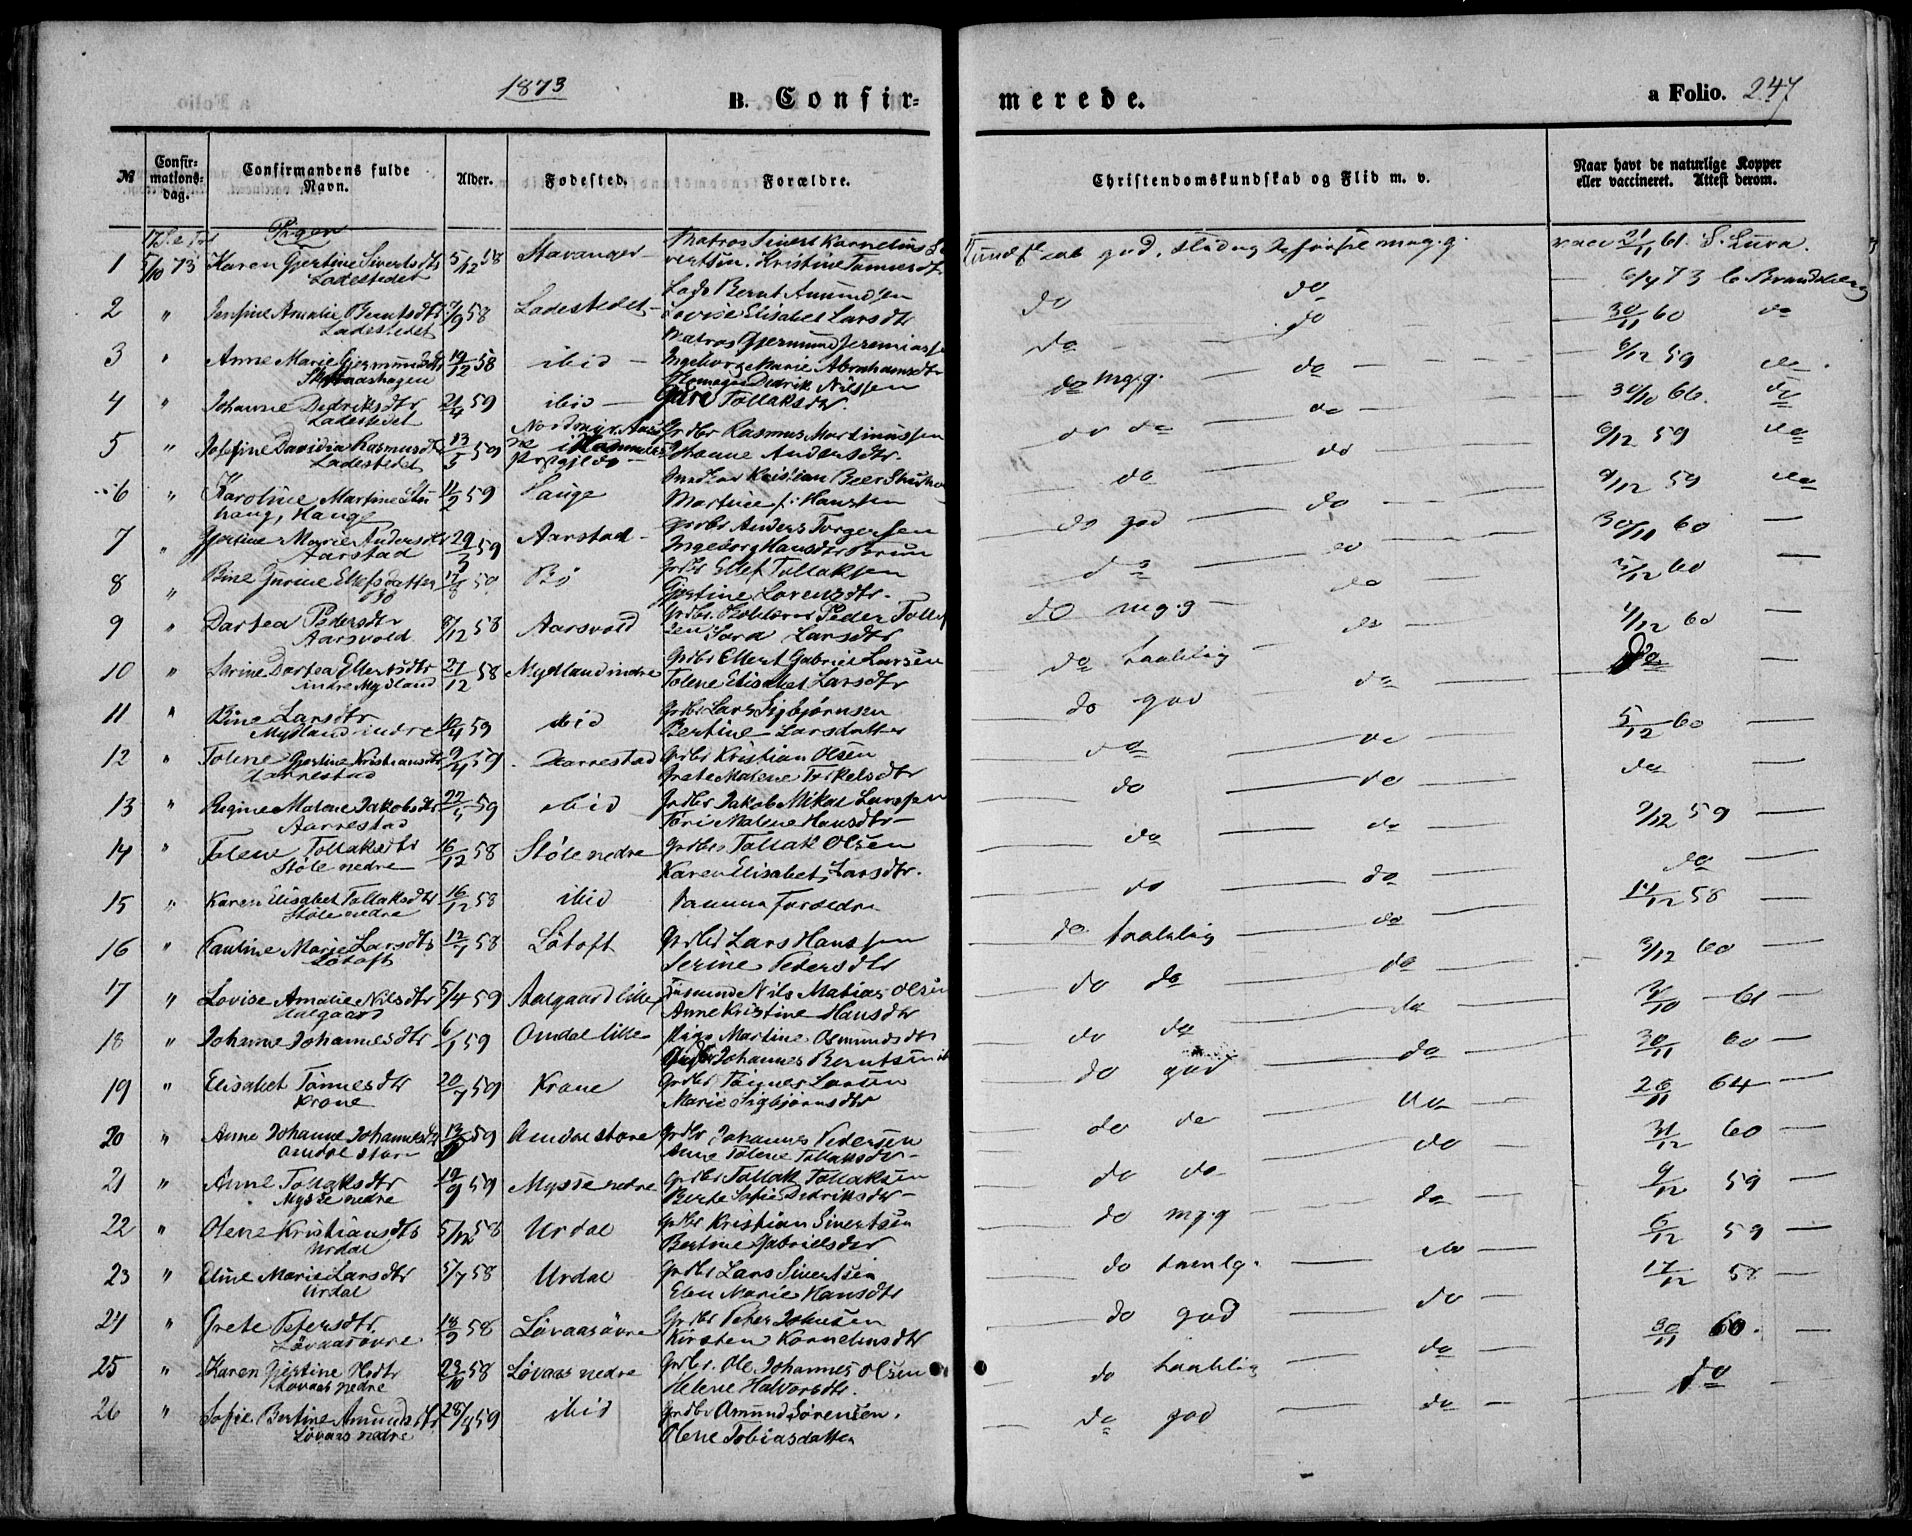 1873
B. Confir=
merede.
a Folio. 247
№
Confir=
mations=
dag.
Confirmandens fulde
Navn.
Alder.
Fødested.
Forældre.
Christendomskundskab og Flid m. v.
Naar havt de naturlige Kopper
eller vaccineret. Attest derom.
Piger
1 5/10 73 Karen Gjertine Sivertsdtr 5/12 58 Stavanger
Ladestedet
god mg.g. vacc 21/11 61.
2 " Amalie Berntsdtr 58 Ladestedet Bernt Amundsen
Ladestedet Lovise Elisabet Larsdtr
do do 6/4 73
3 " Anne Marie Gjermundsdtr 19/12 58 ibid Matros Gjermund Jeremiassen
Ingeborg Marie Abrahamsdtr
do do 30/11 60 do
4 " Johanne Dedriksdtr 21/4 59 ibid Dedrik Nilssen
Ladestedet Tollaksdtr.
do mg.g. do 6/12 59 do
5 " Josefine Davidia Rasmusdtr 13/5 59 Grdbr Rasmus Martinussen
Ladestedet Johanne Andersdtr.
do do do 30/10 66. do
6 " Karoline Martine 11/2 59 Hauge Kristian Beer
haug, Hauge Martine f: Hanssen
do do 6/12 59 do
7 " Gjertine Marie Andersdtr 29/3 59 Aarstad Grdbr Anders Torgersen
Aarstad Ingeborg Hansdtr
do god do 9/12 59 do
8 " Bine Gurine Ellefsdatter 17/8 59 Bø Grdbr Ellef Tollaksen
Bø Gjertine Lorenzdtr.
do do 30/11 60
9 " Dartea Pedersdtr 8/12 58 Aarsvold Grdbr. Peder
Aarsvold Sara Larsdtr
do mg.g do 5/12 60
10 " Dartea Ellertsdtr 27/12 58 Mydland indre Grdbr Ellert Gabriel Larsen
indre Mydland Tolene Elisabet Larsdtr
do taalelig do 1/12 60
11 " Bine Larsdtr 10/4 59 ibid Grdbr Lars Sigbjørnsen
Mydland indre Bertine Larsdatter
do god do do
12 " Tolene Gjertine Kristiansdtr 9/4 59 Aarrestad Grdbr Kristian Olsen
Aarrestad Grete Malene Terkelsdtr
do do 5/12 60
13 " Regine Malene Jakobsdtr 59 ibid Grdbr Jakob Mikal Larssen
Aarrestad Tori Malene Hansdtr
do do do
14 " Tolene Tollaksdtr 16/12 58 Støle nedre Grdbr Tollak Olsen
Støle nedre Karen Elisabet Larsdtr.
do do 9/12 59
15 " Karen Elisabet Tollaksdtr 16/12 58 ibid Samme Forældre
Støle nedre
do do do
16 " Pauline Marie Larsdtr 58 Løtoft Grdbr Lars Hanssen
Løtoft Serine Pedersdtr
do taalelig do 17/12 58
17 " Lovise Amalie Nilsdtr 5/4 59 Aalgaard lille Nils Matias Olsen
Aalgaard Anne Kristine Hansdtr
do do do 9/12 60
18 " Johanne Johannesdtr 6/1 59 Omdal lille Pige Martine Osmundsdtr
Johannes Berntsen
do do do 61
19 " Elisabet Tønnesdtr 20/7 59 Krone Grdbr Tønnes Larsen
Krone Marie Sigbjørnsdtr
do god do 30/11 60
20 " Anne Johanne Johannesdtr 59 Omdal store Grdbr Johannes Pedersen
Omdal store Anne Tolene Tollaksdtr
do do do 26/11 64
21 " Anne Tollaksdtr 19/9 59 Mysse nedre Grdbr Tollak Tollaksen
Mysse nedre Berte Sofie Dedriksdtr
do do do 31/12 60
22 " Olene Kristiansdtr 5/12 58 Urdal Grdbr Kristian Sivertsen
Urdal Bertine Gabrielsdtr
do mg.g do 9/12 59
23 " Eline Marie Larsdtr 5/7 58 Urdal Grdbr Lars Sivertsen
Urdal Elen Marie Hansdtr
do temlg. do 6/12 59
24 " Grete Petersdtr 13/9 58 Løvaas øvre Grdbr Peter
Løvaas øvre Kirsten Korneliusdtr
do god do 17/12 58
25 " Karen Gjertine Olsdtr 23/10 58 Løvaas nedre Grdbr. Ole Johannes Olsen
Løvaas nedre Helene Halvorsdtr.
do taalelig do 30/11 60.
26 " Sofie Bertine Amundsdtr 28/4 59 ibid Grdbr Amund Sørensen.
Løvaas nedre Olene Tobiasdatter
do god do do